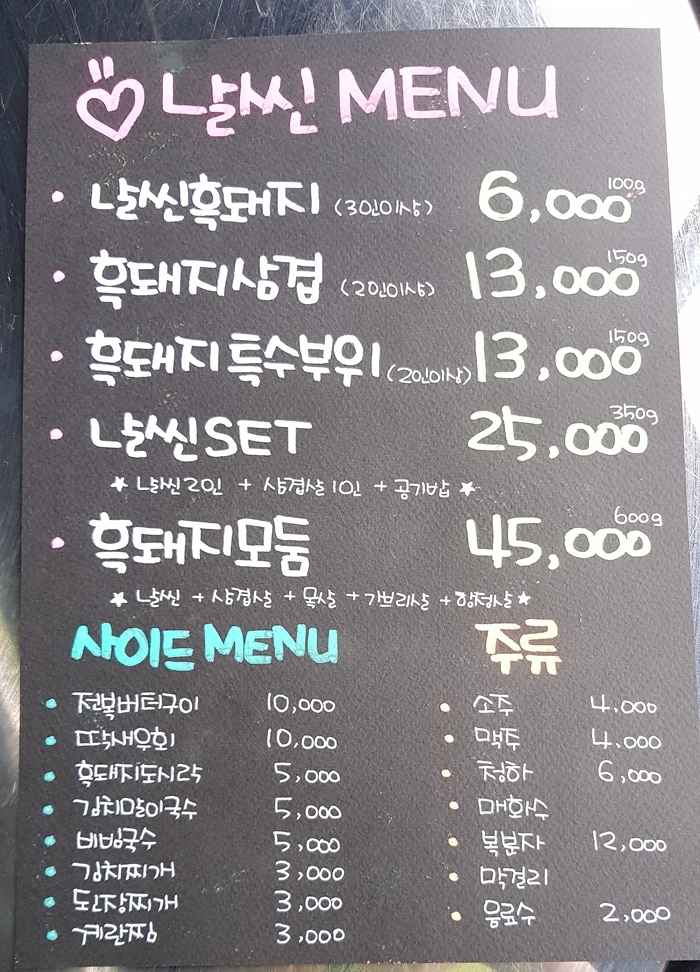 날씬 MENU
날씬흑돼지 (3인이상) 6,000 100g
흑돼지삼겹 (2인이상) 13,000 150g
흑돼지 특수부위 (2인이상) 13,000 150g
날씬 SET 25,000 350g
★ 날씬2인 + 삼겹살 1인 + 공기밥 ★
흑돼지모둠 45,000 600g
★ 날씬 + 삼겹살 + 목살 + 가브리살 + 항정살 ★
사이드 MENU
전복버터구이 10,000
딱새우회 10,000
흑돼지도시락 5,000
김치말이국수 5,000
비빔국수 5,000
김치찌개 3,000
된장찌개 3,000
계란찜 3,000
주류
소주 4.000
맥주 4.000
청하 6,000
매화수
복분자 12,000
막걸리
음료수 2,000